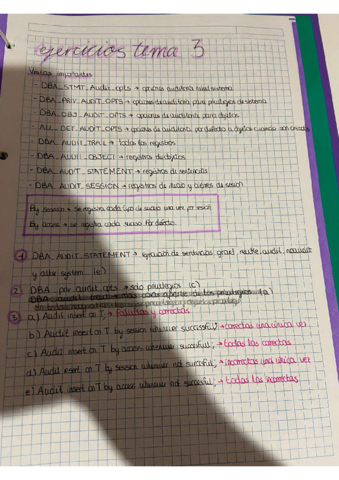 ejercicios tema 3
Vistas importantes
- DBA_STMT_Audit_opts → opciones auditoría nivel sistema
- DBA_PRIV_AUDIT_OPTS → opciones de auditoría para privilegios de sistema
- DBA_OBJ_AUDIT_OPTS → opciones de auditoría para objetos
- ALL_DEF_AUDIT_OPTS → opciones de auditoría por defecto a objetos cuando son creados
- DBA_AUDIT_TRAIL → todos los registros
- DBA_AUDIT_OBJECT → registros de objetos
- DBA_AUDIT_STATEMENT → registros de sentencias
- DBA_AUDIT_SESSION → registros de inicio y cierres de sesión
By session → se registra cada tipo de suceso una vez por sesión
By access → se registra cada suceso. Por defecto.
1 DBA_AUDIT_STATEMENT → ejecución de sentencias grant, revoke, audit, noaudit
y alter system (c)
2 DBA_priv_audit_opts → solo privilegios (c)
3 a) Audit insert on T; → fallidas y correctas
b) Audit insert on T by session whenever successful; → correctas una única vez
c) Audit insert on T by access whenever successful; → todas las correctas
d) Audit insert on T by session whenever not successful; → incorrectas una única vez
e) Audit insert on T by access whenever not successful; → todas las incorrectas